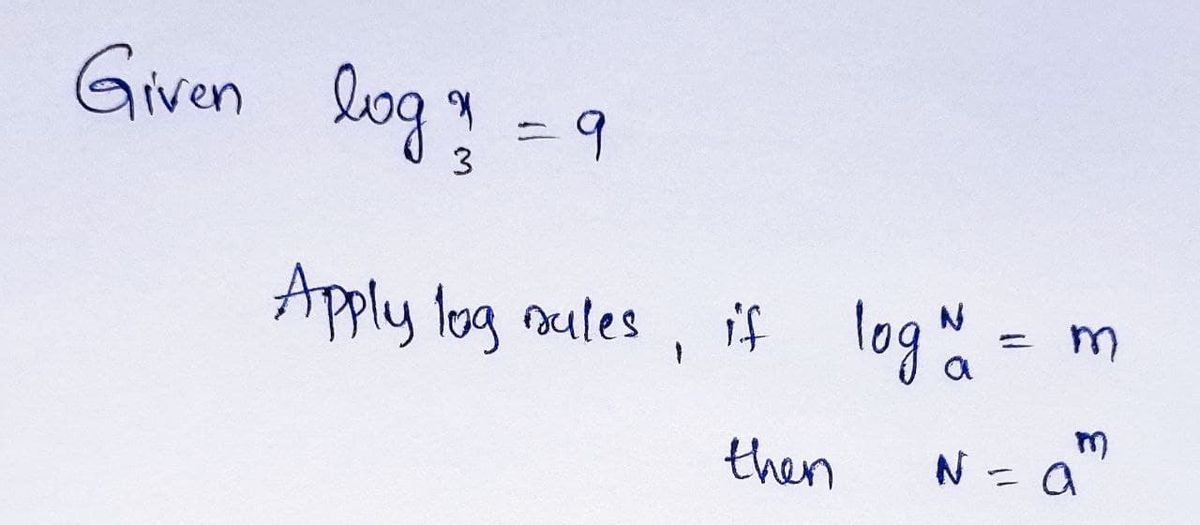 Given log₃ˣ = 9
Apply log rules, if logₐᴺ = m
then N = aᵐ